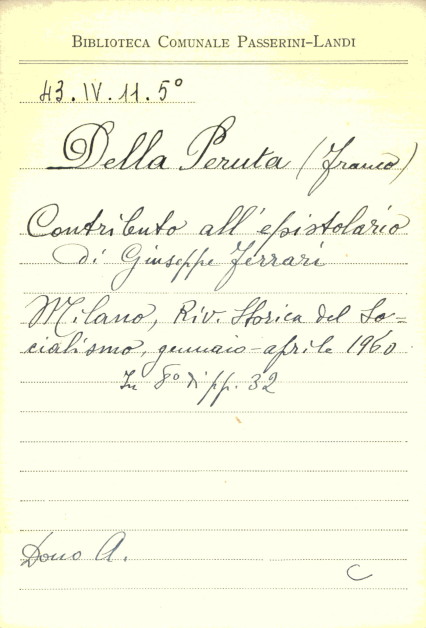 BIBLIOTECA COMUNALE PASSERINI-LANDI
43.IV.11.5°
Della Peruta (Franco)
Contributo all'epistolario
di Giuseppe Ferrari
Milano, Riv. Storica del So=
cialismo, gennaio-aprile 1960
In 8° di pp. 32
Dono A.
C